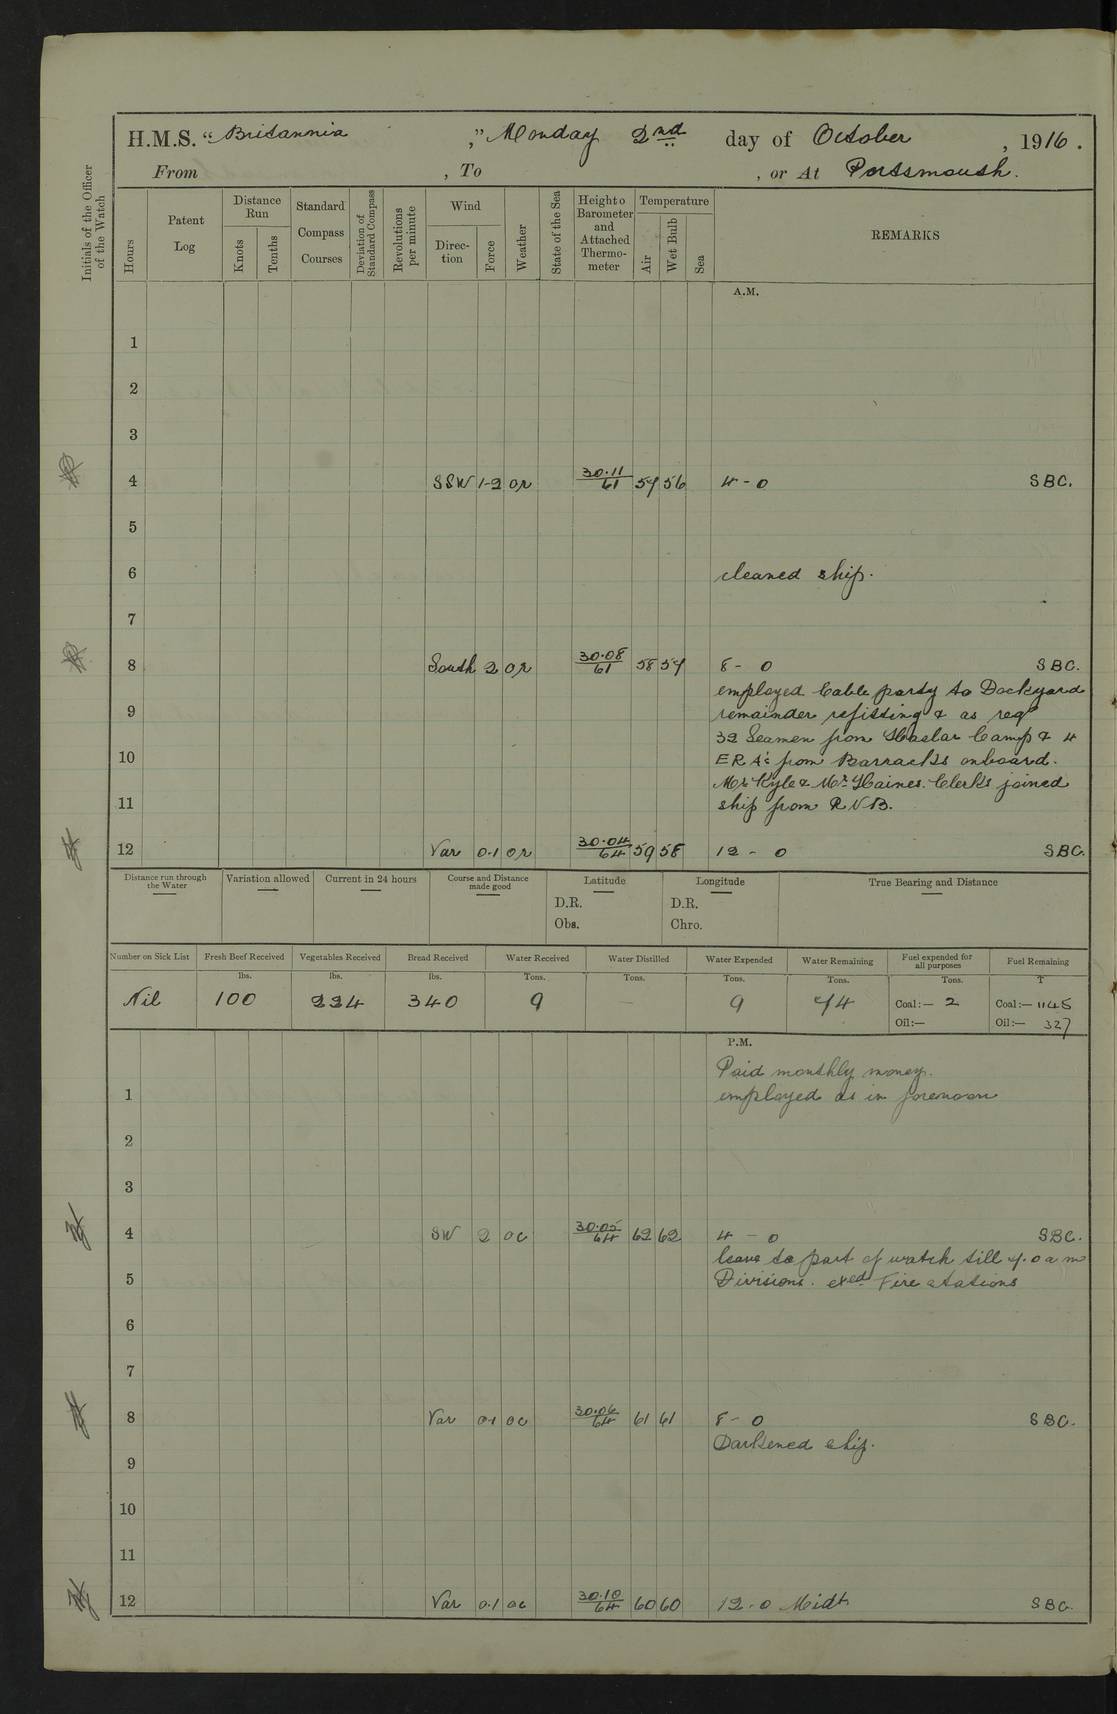 H.M.S. "Britannia," Monday 2nd day of October, 1916.
From , To , or At Portsmouth.
Initials of the Officer of the Watch
Hours
Patent Log
Distance Run
Knots
Tenths
Standard Compass Courses
Deviation of Standard Compass
Revolutions per minute
Wind
Direc-tion
Force
Weather
State of the Sea
Height o Barometer and Attached Thermo-meter
Temperature
Air
Wet Bulb
Sea
REMARKS
A.M.
1
2
3
4 SSW 1-2 or 30.11/61 57 56 4-0 SBC.
5
6 cleaned ship.
7
8 South 2 or 30.08/61 58 57 8-0 SBC.
employed Cable party to Dockyard
9 remainder refitting & as reqd
32 Seamen from Haslar Camp & 4
10 ERA's from Barracks onboard.
Mr Kyle & Mr Haines. Clerks joined
11 ship from RNB.
12 Var 0.1 or 30.04/64 59 58 12-0 SBC.
Distance run through the Water
Variation allowed
Current in 24 hours
Course and Distance made good
Latitude
D.R.
Obs.
Longitude
D.R.
Chro.
True Bearing and Distance
Number on Sick List Fresh Beef Received Vegetables Received Bread Received Water Received Water Distilled Water Expended Water Remaining Fuel expended for all purposes Fuel Remaining
lbs. lbs. lbs. Tons. Tons. Tons. Tons. Tons. T
Nil 100 224 340 9 – 9 74 Coal:— 2 Coal:— 1145
Oil:— Oil:— 327
P.M.
Paid monthly money.
1 employed as in forenoon
2
3
4 SW 2 oc 30.05/64 62 62 4-0 SBC.
leave to part of watch till 7.0 a m
5 Divisions. exed Fire stations
6
7
8 Var 0.1 oc 30.06/64 61 61 8-0 SBC.
Darkened ship.
9
10
11
12 Var 0.1 oc 30.10/64 60 60 12.0 Midt SBC.